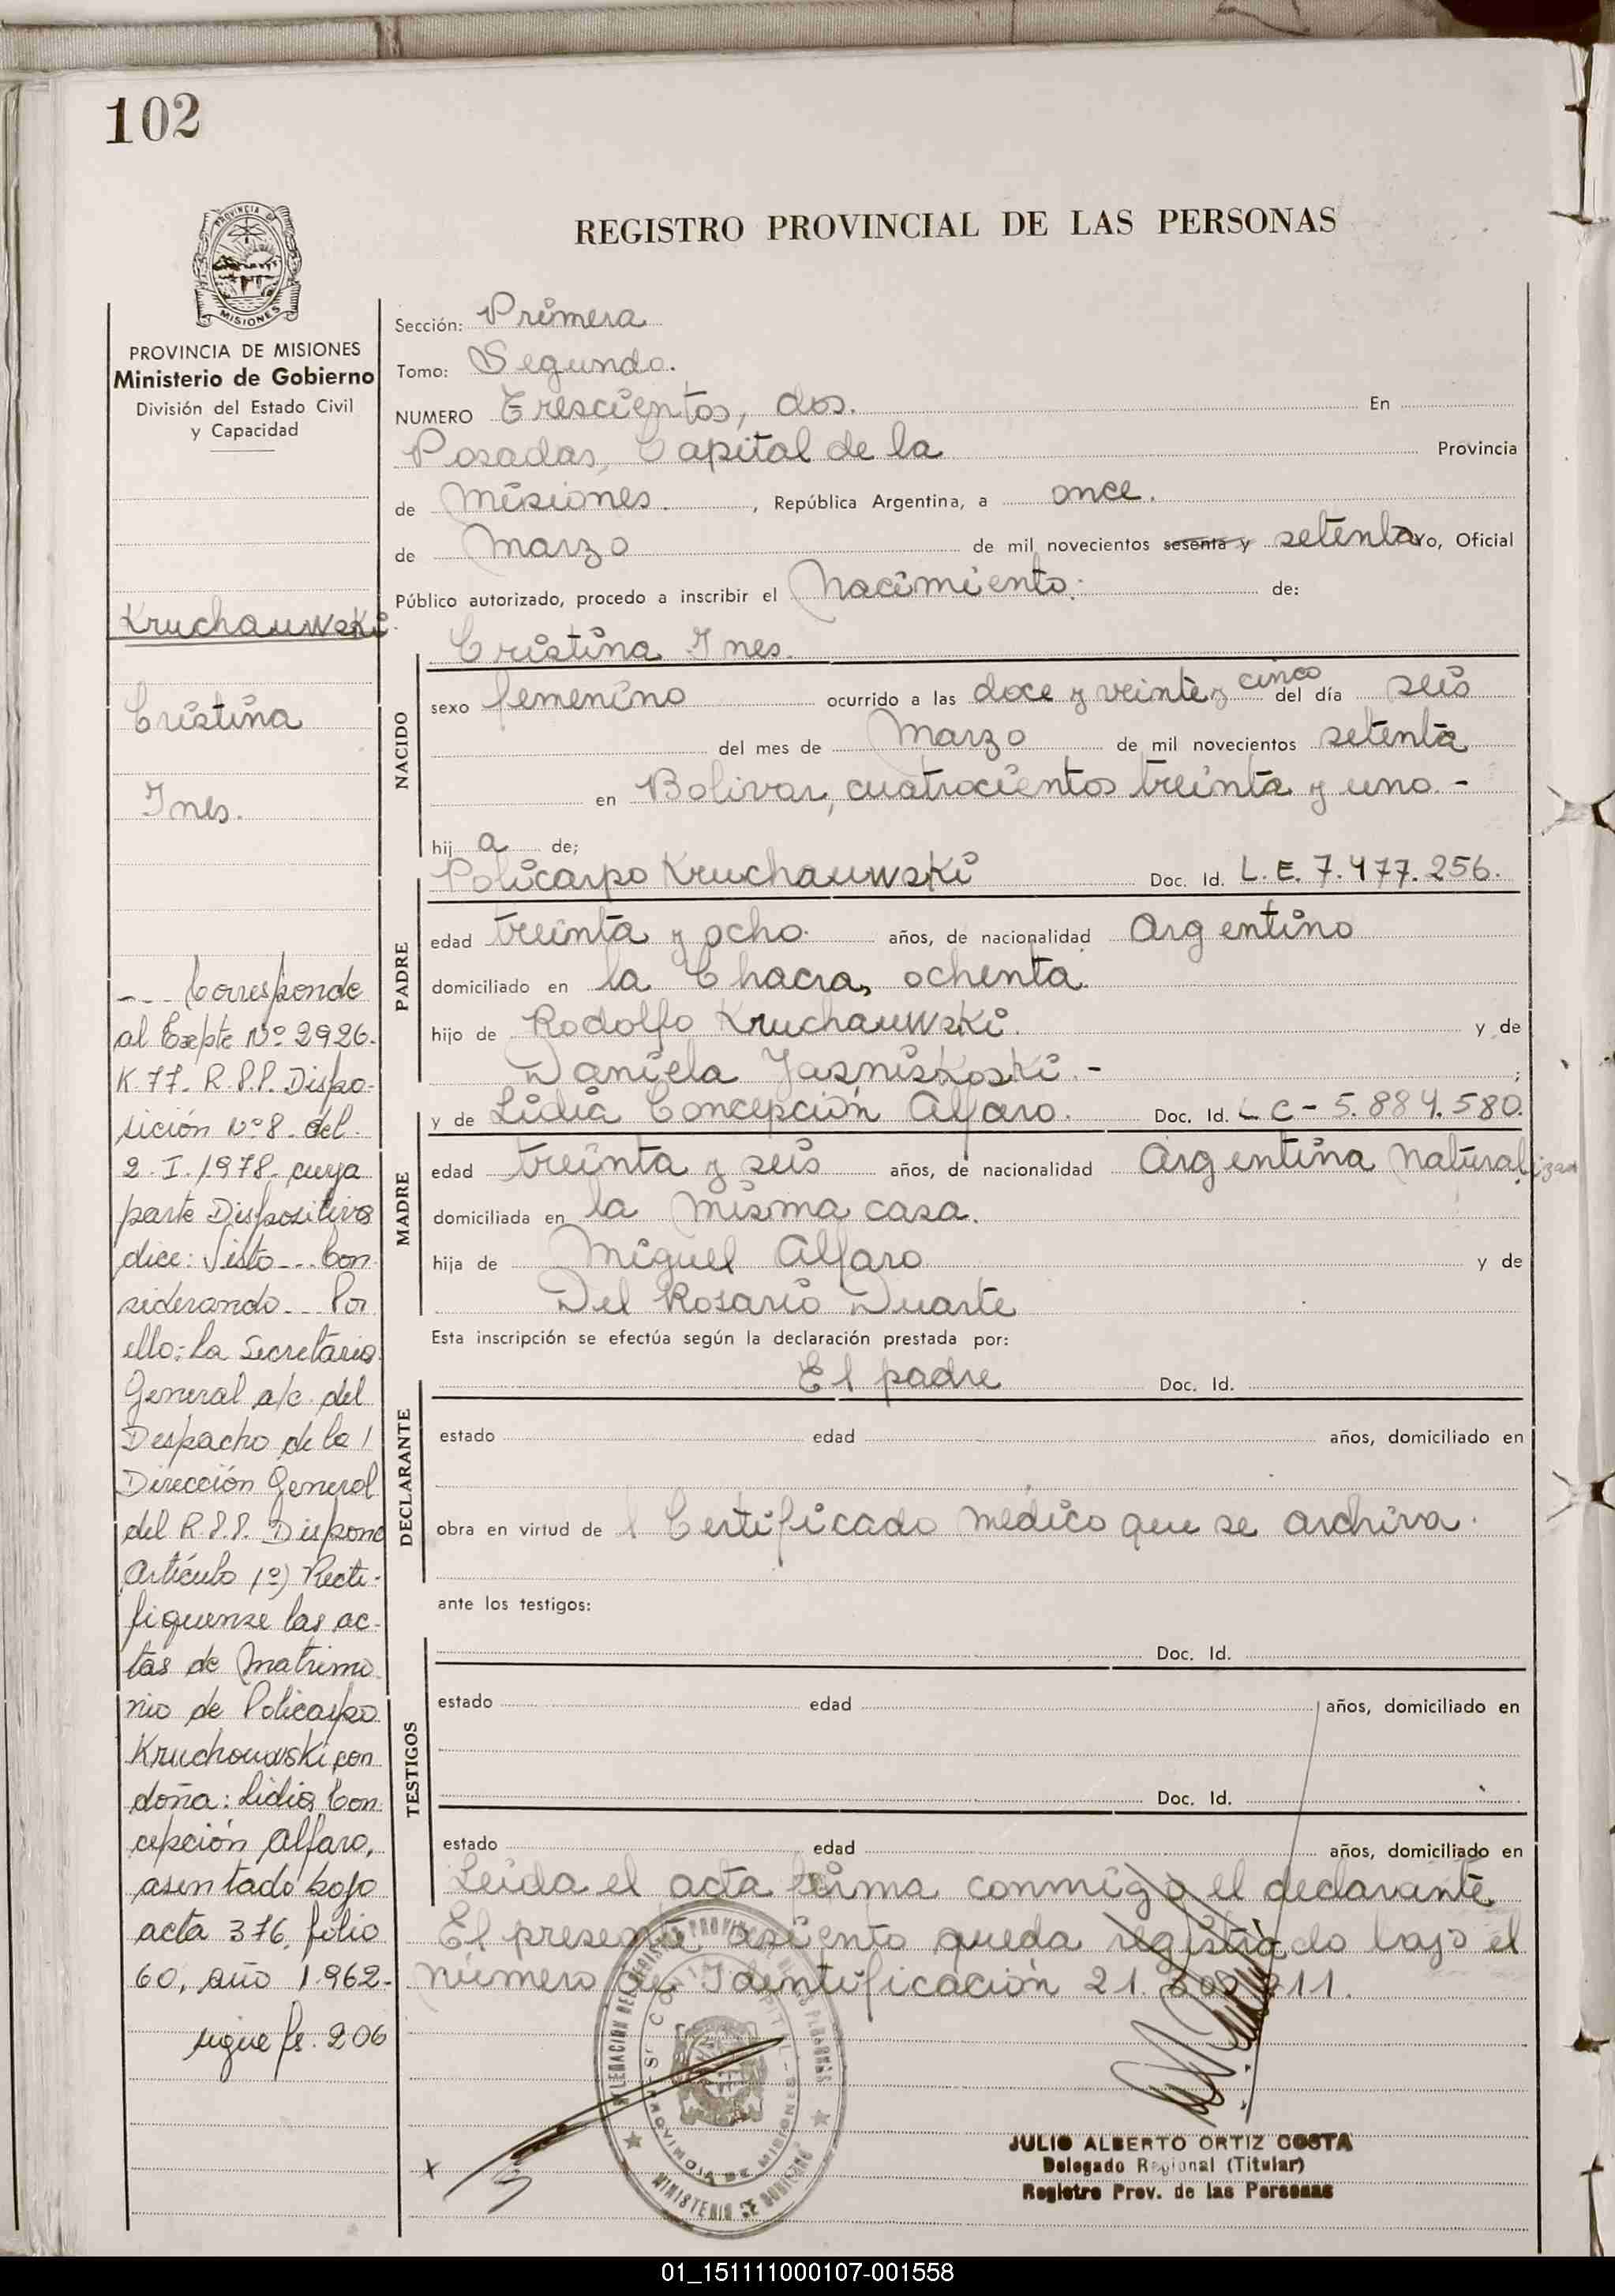 102
PROVINCIA DE
MISIONES
PROVINCIA DE MISIONES
Ministerio de Gobierno
División del Estado Civil
y Capacidad
Kruchauwski
Cristina
Ines.
REGISTRO PROVINCIAL DE LAS PERSONAS
Sección: Primera
Tomo: Segundo.
NUMERO Trescientos, dos. En
Posadas, Capital de la Provincia
de Misiones. , República Argentina, a once.
de Marzo de mil novecientos sesenta y setenta Yo, Oficial
Público autorizado, procedo a inscribir el Nacimiento. de:
Cristina Ines.
NACIDO
sexo femenino ocurrido a las doce y veinte y cinco del día seis
del mes de Marzo de mil novecientos setenta
en Bolivar, cuatrocientos treinta y uno.-
hij a de;
Policarpo Kruchauwski Doc. Id. L.E. 7.477.256.
PADRE
edad treinta y ocho. años, de nacionalidad Argentino
domiciliado en la Chacra, ochenta.
hijo de Rodolfo Kruchauwski. y de
Daniela Jasniskoski.- ;
y de Lidia Concepción Alfaro. Doc. Id. L C - 5.884.580.
MADRE
edad treinta y seis años, de nacionalidad Argentina
domiciliada en la misma casa.
hija de Miguel Alfaro y de
Del Rosario Duarte
Esta inscripción se efectúa según la declaración prestada por:
El padre Doc. Id.
DECLARANTE
estado edad años, domiciliado en
obra en virtud de l Certificado médico que se archiva.
ante los testigos:
Doc. Id.
TESTIGOS
estado edad años, domiciliado en
Doc. Id.
estado edad años, domiciliado en
Leida el acta firma conmigo el declarante
El presente asiento queda registrado bajo el
número de Identificación 21. 11.
--- Corresponde
al Expte Nº 2926-
K 77- R.P.P. Dispo-
sición Nº 8. del
2. I. 1978. cuya
parte Dispositiva
dice: Visto--- Con
siderando--- Por
ello: La Secretaria
General a/c. del
Despacho de la /
Dirección General
del R.P.P. Dispone
Artículo 1º) Recti-
fiquense las ac-
tas de Matrimo
nio de Policarpo
Kruchouwski con
doña: Lidia Con
cepción Alfaro,
asentado bajo
acta 376, folio
60, año 1.962-
sigue fs. 206
MINISTERIO DE GOBIERNO
PROVINCIA DE MISIONES
JULIO ALBERTO ORTIZ COSTA
Delegado Regional (Titular)
Registro Prov. de las Personas
01_151111000107-001558